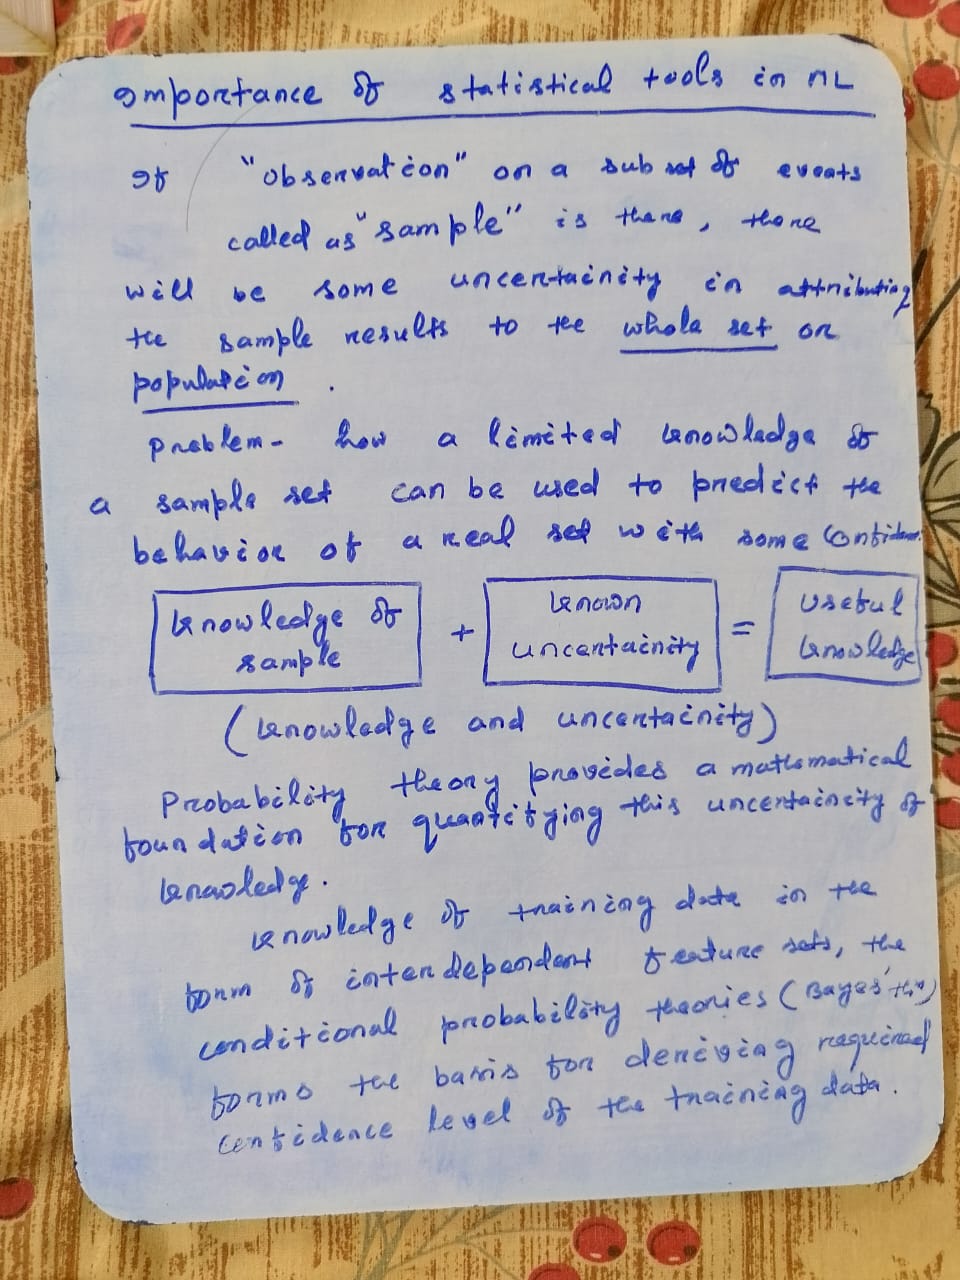 Importance of statistical tools in ML
If "observation" on a sub set of events
called as "sample" is there, there
will be some uncertainity in attributing
the sample results to the whole set or
population.
Problem - how a limited knowledge of
a sample set can be used to predict the
behavior of a real set with some confidence
knowledge of sample + known uncertainity = useful knowledge
(knowledge and uncertainity)
Probability theory provides a mathematical
foundation for quantifying this uncertainity of
knowledge.
knowledge of training data in the
form of interdependant feature sets, the
conditional probability theories (Bayes' thm)
forms the basis for deriving required
confidence level of the training data.